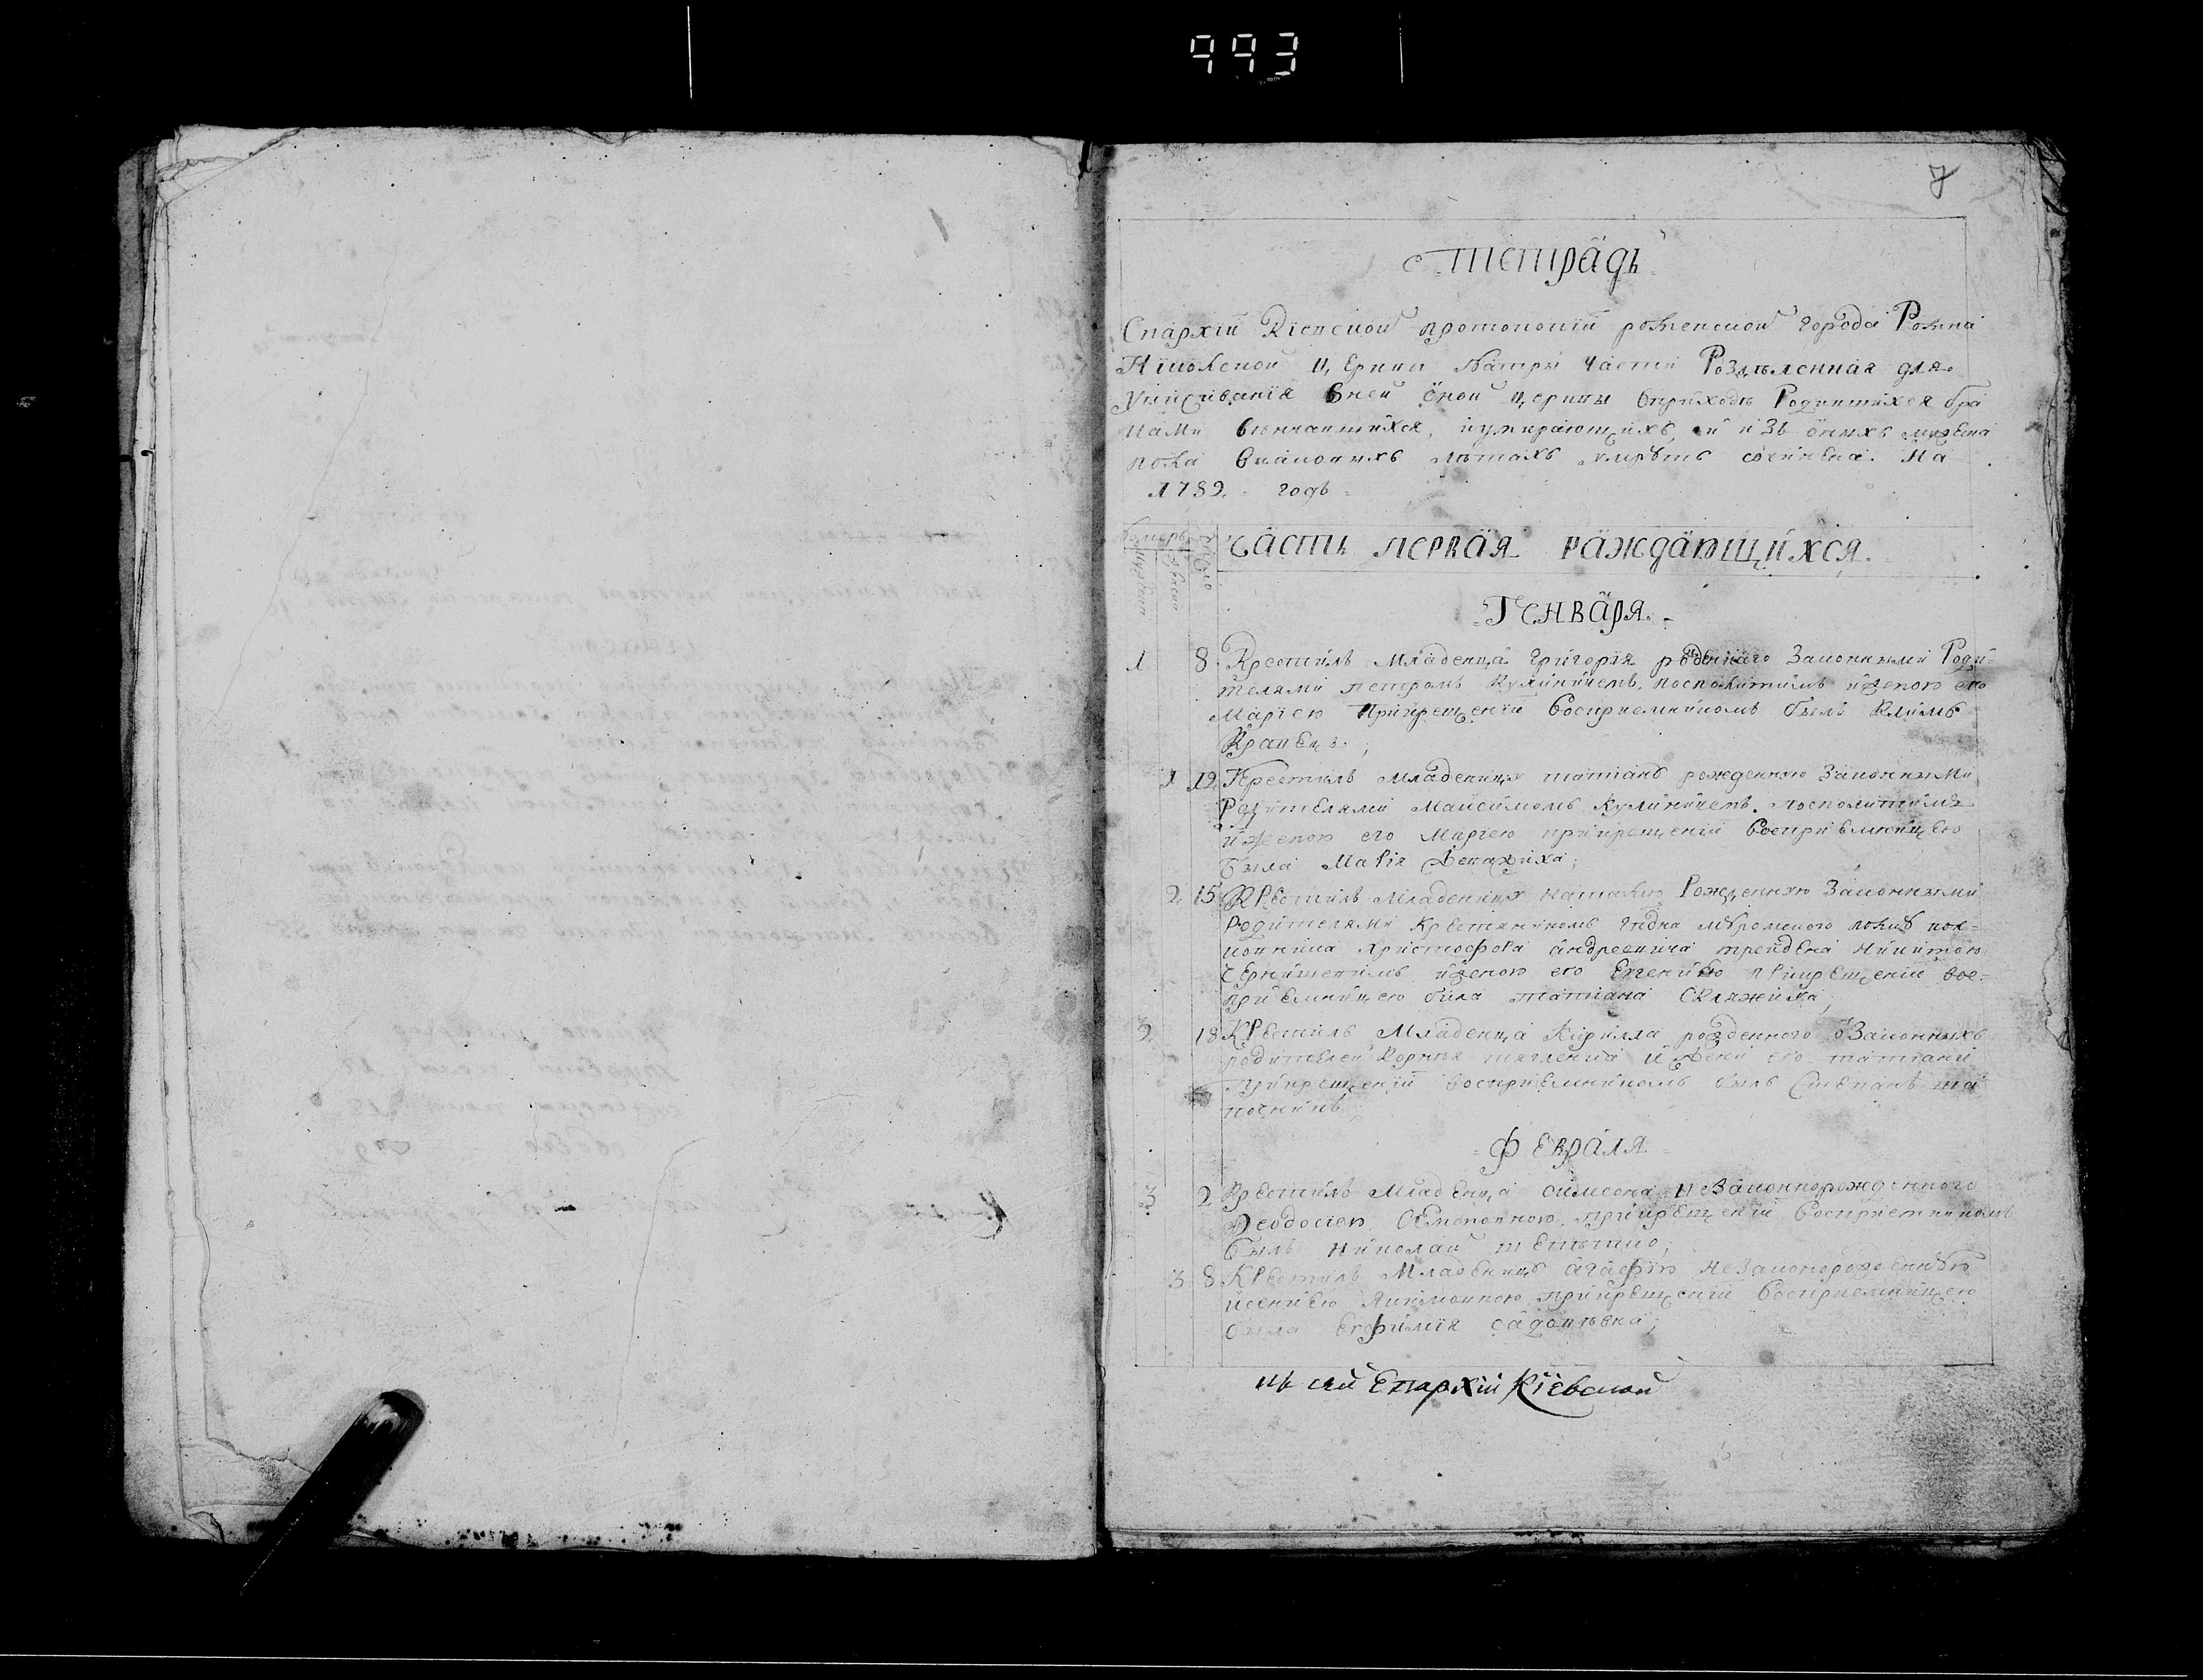 993
7
Тетрадь
Епархіи Кіевской протопопіи роменской города Ромна
Николской церкви натри части Розделенная для
Уписиванія вней оной церкви вприходѣ Родившихся бра
ками венчавшихся, иумирающихъ, и изъ оныхъ мужеска
пола вкаковихъ летахъ умрѣтъ сочинена. На
1789 годъ
Номеръ
Мужеска
Женска
Число
Часть первая раждающихся
Генваря
1 8 Крестилъ младенца Григорія рожденаго Законними Роди=
телями петромъ Кулиничемъ посполитимъ иженою его
Маріею Прикрещеніи восприемникомъ былъ Климъ
Кравецъ;
1 12 Крестилъ младеницу татіану рожденную Законними
Родителями Максимомъ Кулиничемъ посполитимъ
иженою его Маріею прикрещеніи восприемницею
была Марія
2 15 Крестилъ младеницу наталію Рожденную Законними
Родителями Крестяниномъ
Христофора андреевича Никитою
иженою его Евгениею прикрещеніи вос=
приемницею била татіана
2 18 Крестилъ Младенца Кирилла рожденного ѿ Законнихъ
родителей Корнѣя и жени его татіани
прикрещеніи восприемникомъ былъ Степанъ
Февраля
3 2 Крестилъ Младенца симеона незаконнорожденного
Феодосіею прикрещеніи восприемникомъ
былъ николай
3 8 Крестилъ Младеницу агафію незаконорожденную
прикрещеніи восприемницею
была евфимія
сей Епархіи Кіевской